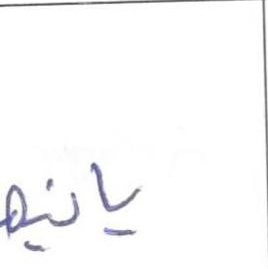 يانيه